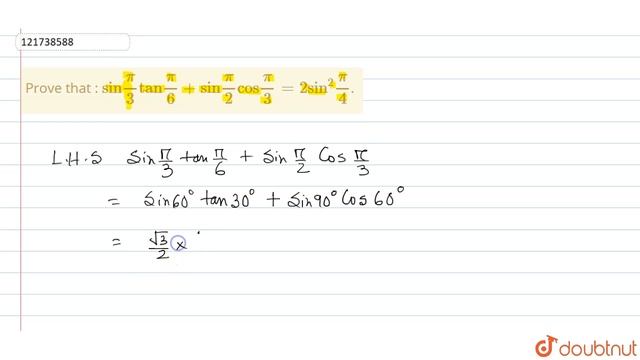 121738588
Prove that : sin π/3 tan π/6 + sin π/2 cos π/3 = 2sin² π/4.
L.H.S Sin π/3 tan π/6 + Sin π/2 Cos π/3
= Sin60° tan30° + Sin90° Cos60°
= √3/2 ×
doubtnut